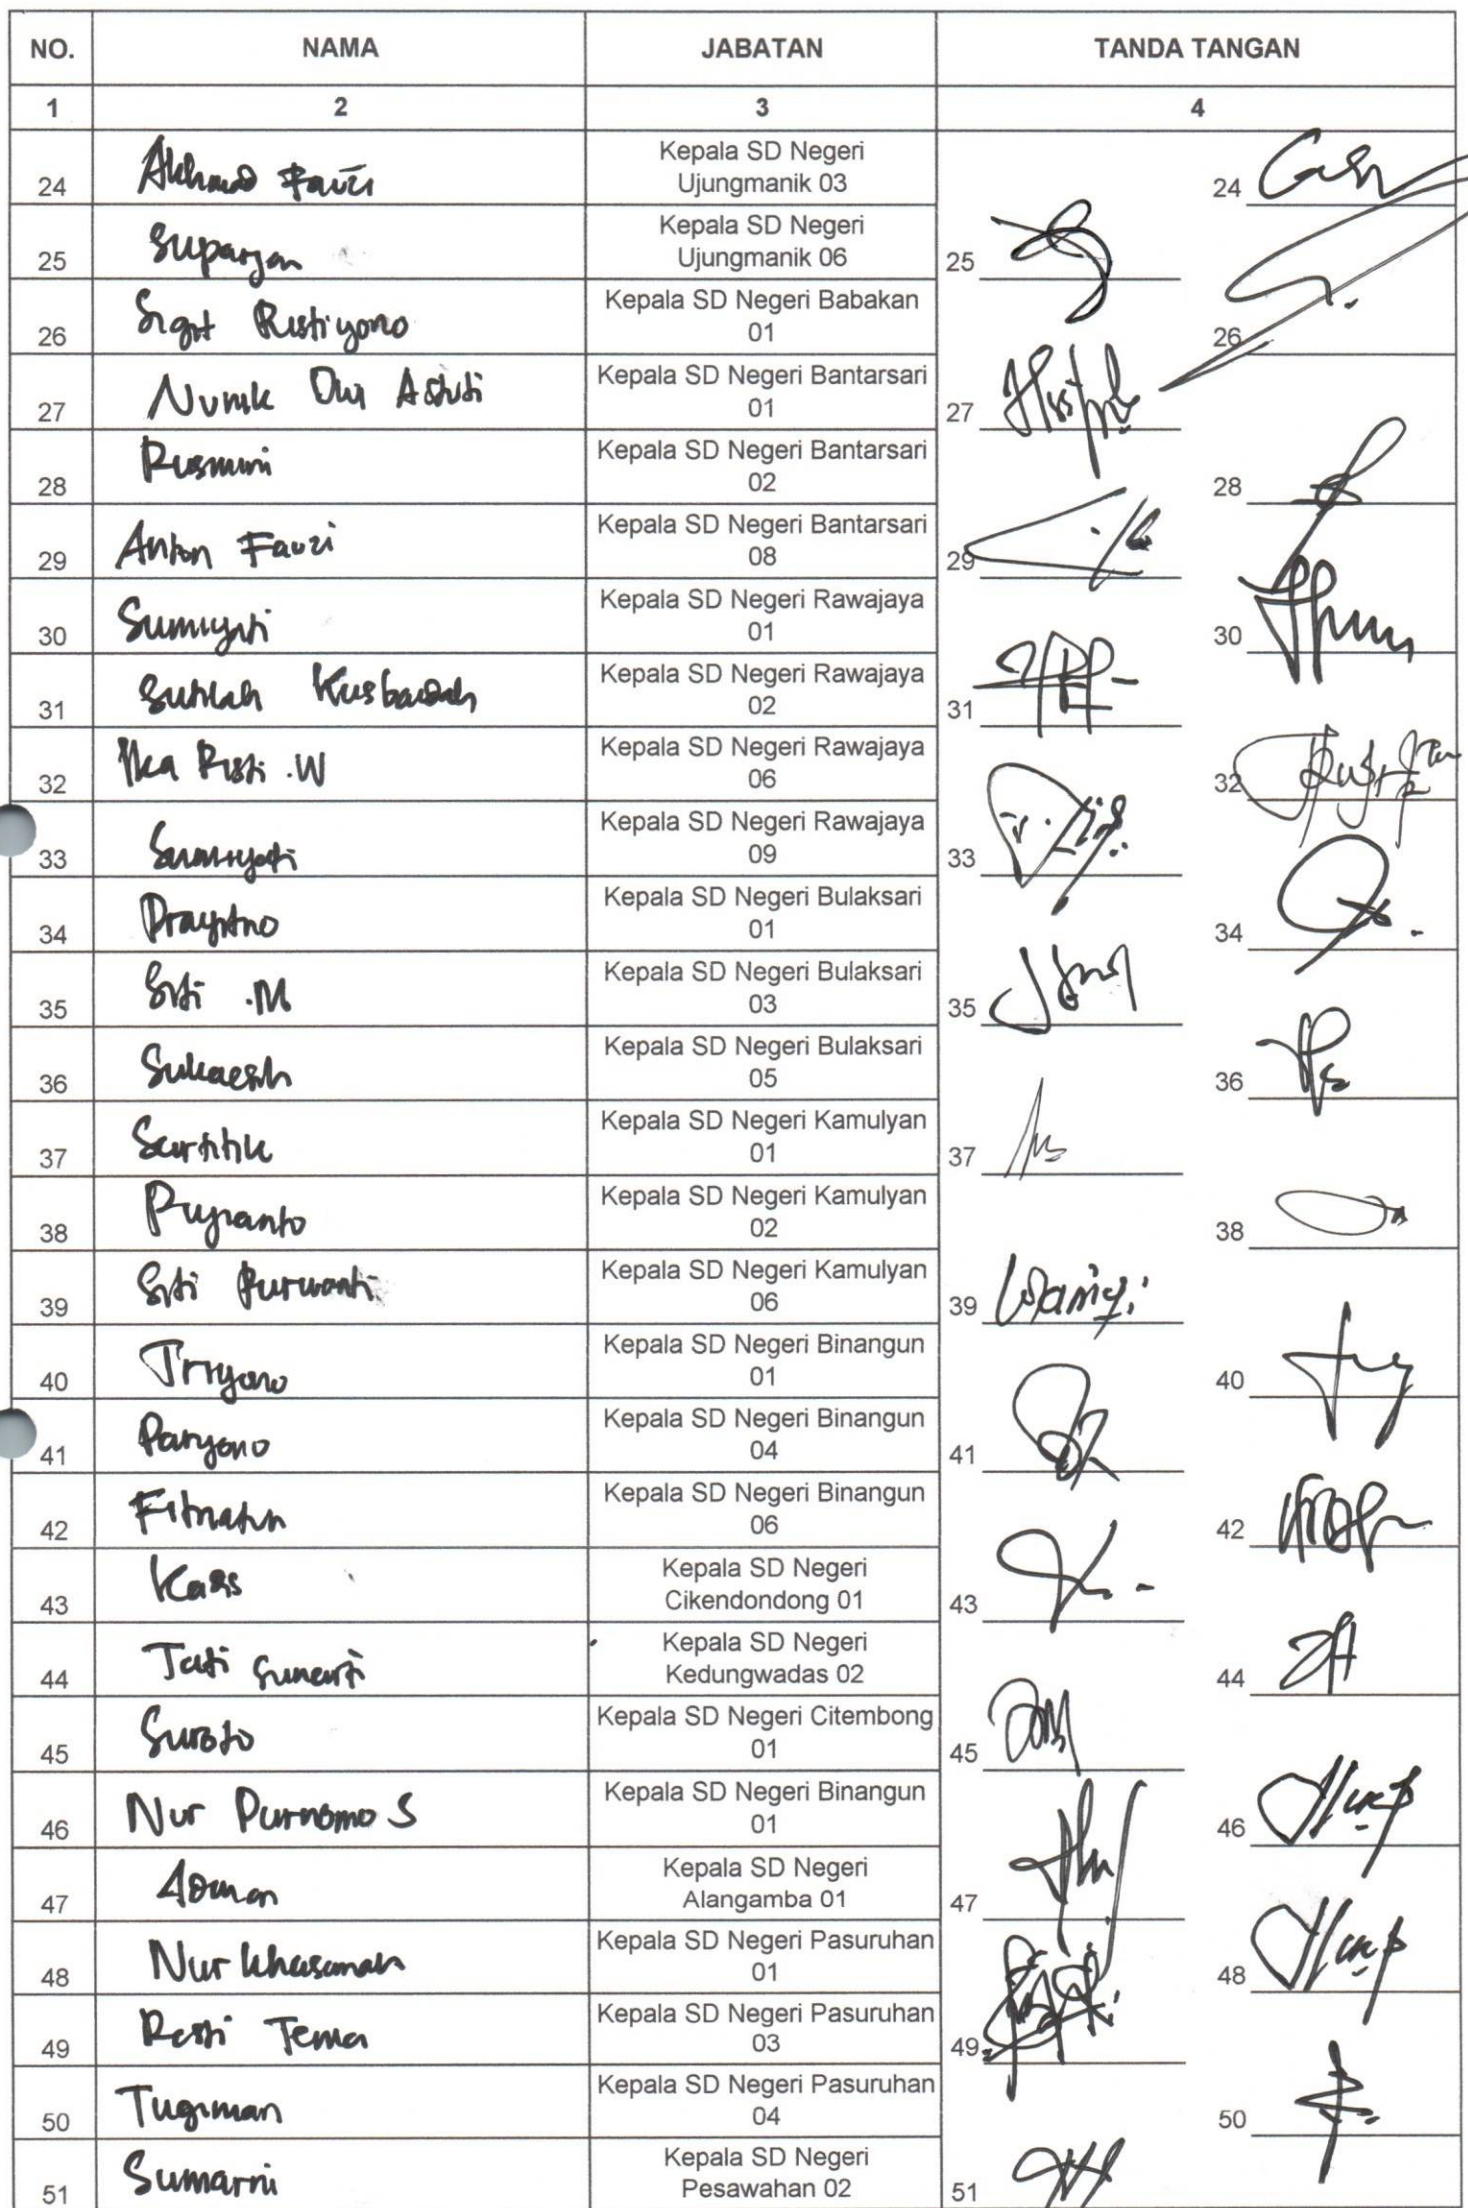 NO. NAMA JABATAN TANDA TANGAN
1 2 3 4
24 Akhmad Fauzi Kepala SD Negeri Ujungmanik 03 24
25 Suparjan Kepala SD Negeri Ujungmanik 06 25
26 Sigit Ristiyono Kepala SD Negeri Babakan 01 26
27 Nunik Dwi Astuti Kepala SD Negeri Bantarsari 01 27
28 Rusmini Kepala SD Negeri Bantarsari 02 28
29 Anton Fauzi Kepala SD Negeri Bantarsari 08 29
30 Sumiyati Kepala SD Negeri Rawajaya 01 30
31 Kepala SD Negeri Rawajaya 02 31
32 Ika Risti .W Kepala SD Negeri Rawajaya 06 32
33 Sumiyati Kepala SD Negeri Rawajaya 09 33
34 Prayitno Kepala SD Negeri Bulaksari 01 34
35 Siti .M Kepala SD Negeri Bulaksari 03 35
36 Sukaesih Kepala SD Negeri Bulaksari 05 36
37 Kepala SD Negeri Kamulyan 01 37
38 Pujianto Kepala SD Negeri Kamulyan 02 38
39 Siti Purwanti Kepala SD Negeri Kamulyan 06 39
40 Triyono Kepala SD Negeri Binangun 01 40
41 Paryono Kepala SD Negeri Binangun 04 41
42 Kepala SD Negeri Binangun 06 42
43 Kepala SD Negeri Cikendondong 01 43
44 Tati Sunarti Kepala SD Negeri Kedungwadas 02 44
45 Suroto Kepala SD Negeri Citembong 01 45
46 Nur Purnomo S Kepala SD Negeri Binangun 01 46
47 Kepala SD Negeri Alangamba 01 47
48 Nur Khasanah Kepala SD Negeri Pasuruhan 01 48
49 Kepala SD Negeri Pasuruhan 03 49
50 Tugiman Kepala SD Negeri Pasuruhan 04 50
51 Sumarni Kepala SD Negeri Pesawahan 02 51